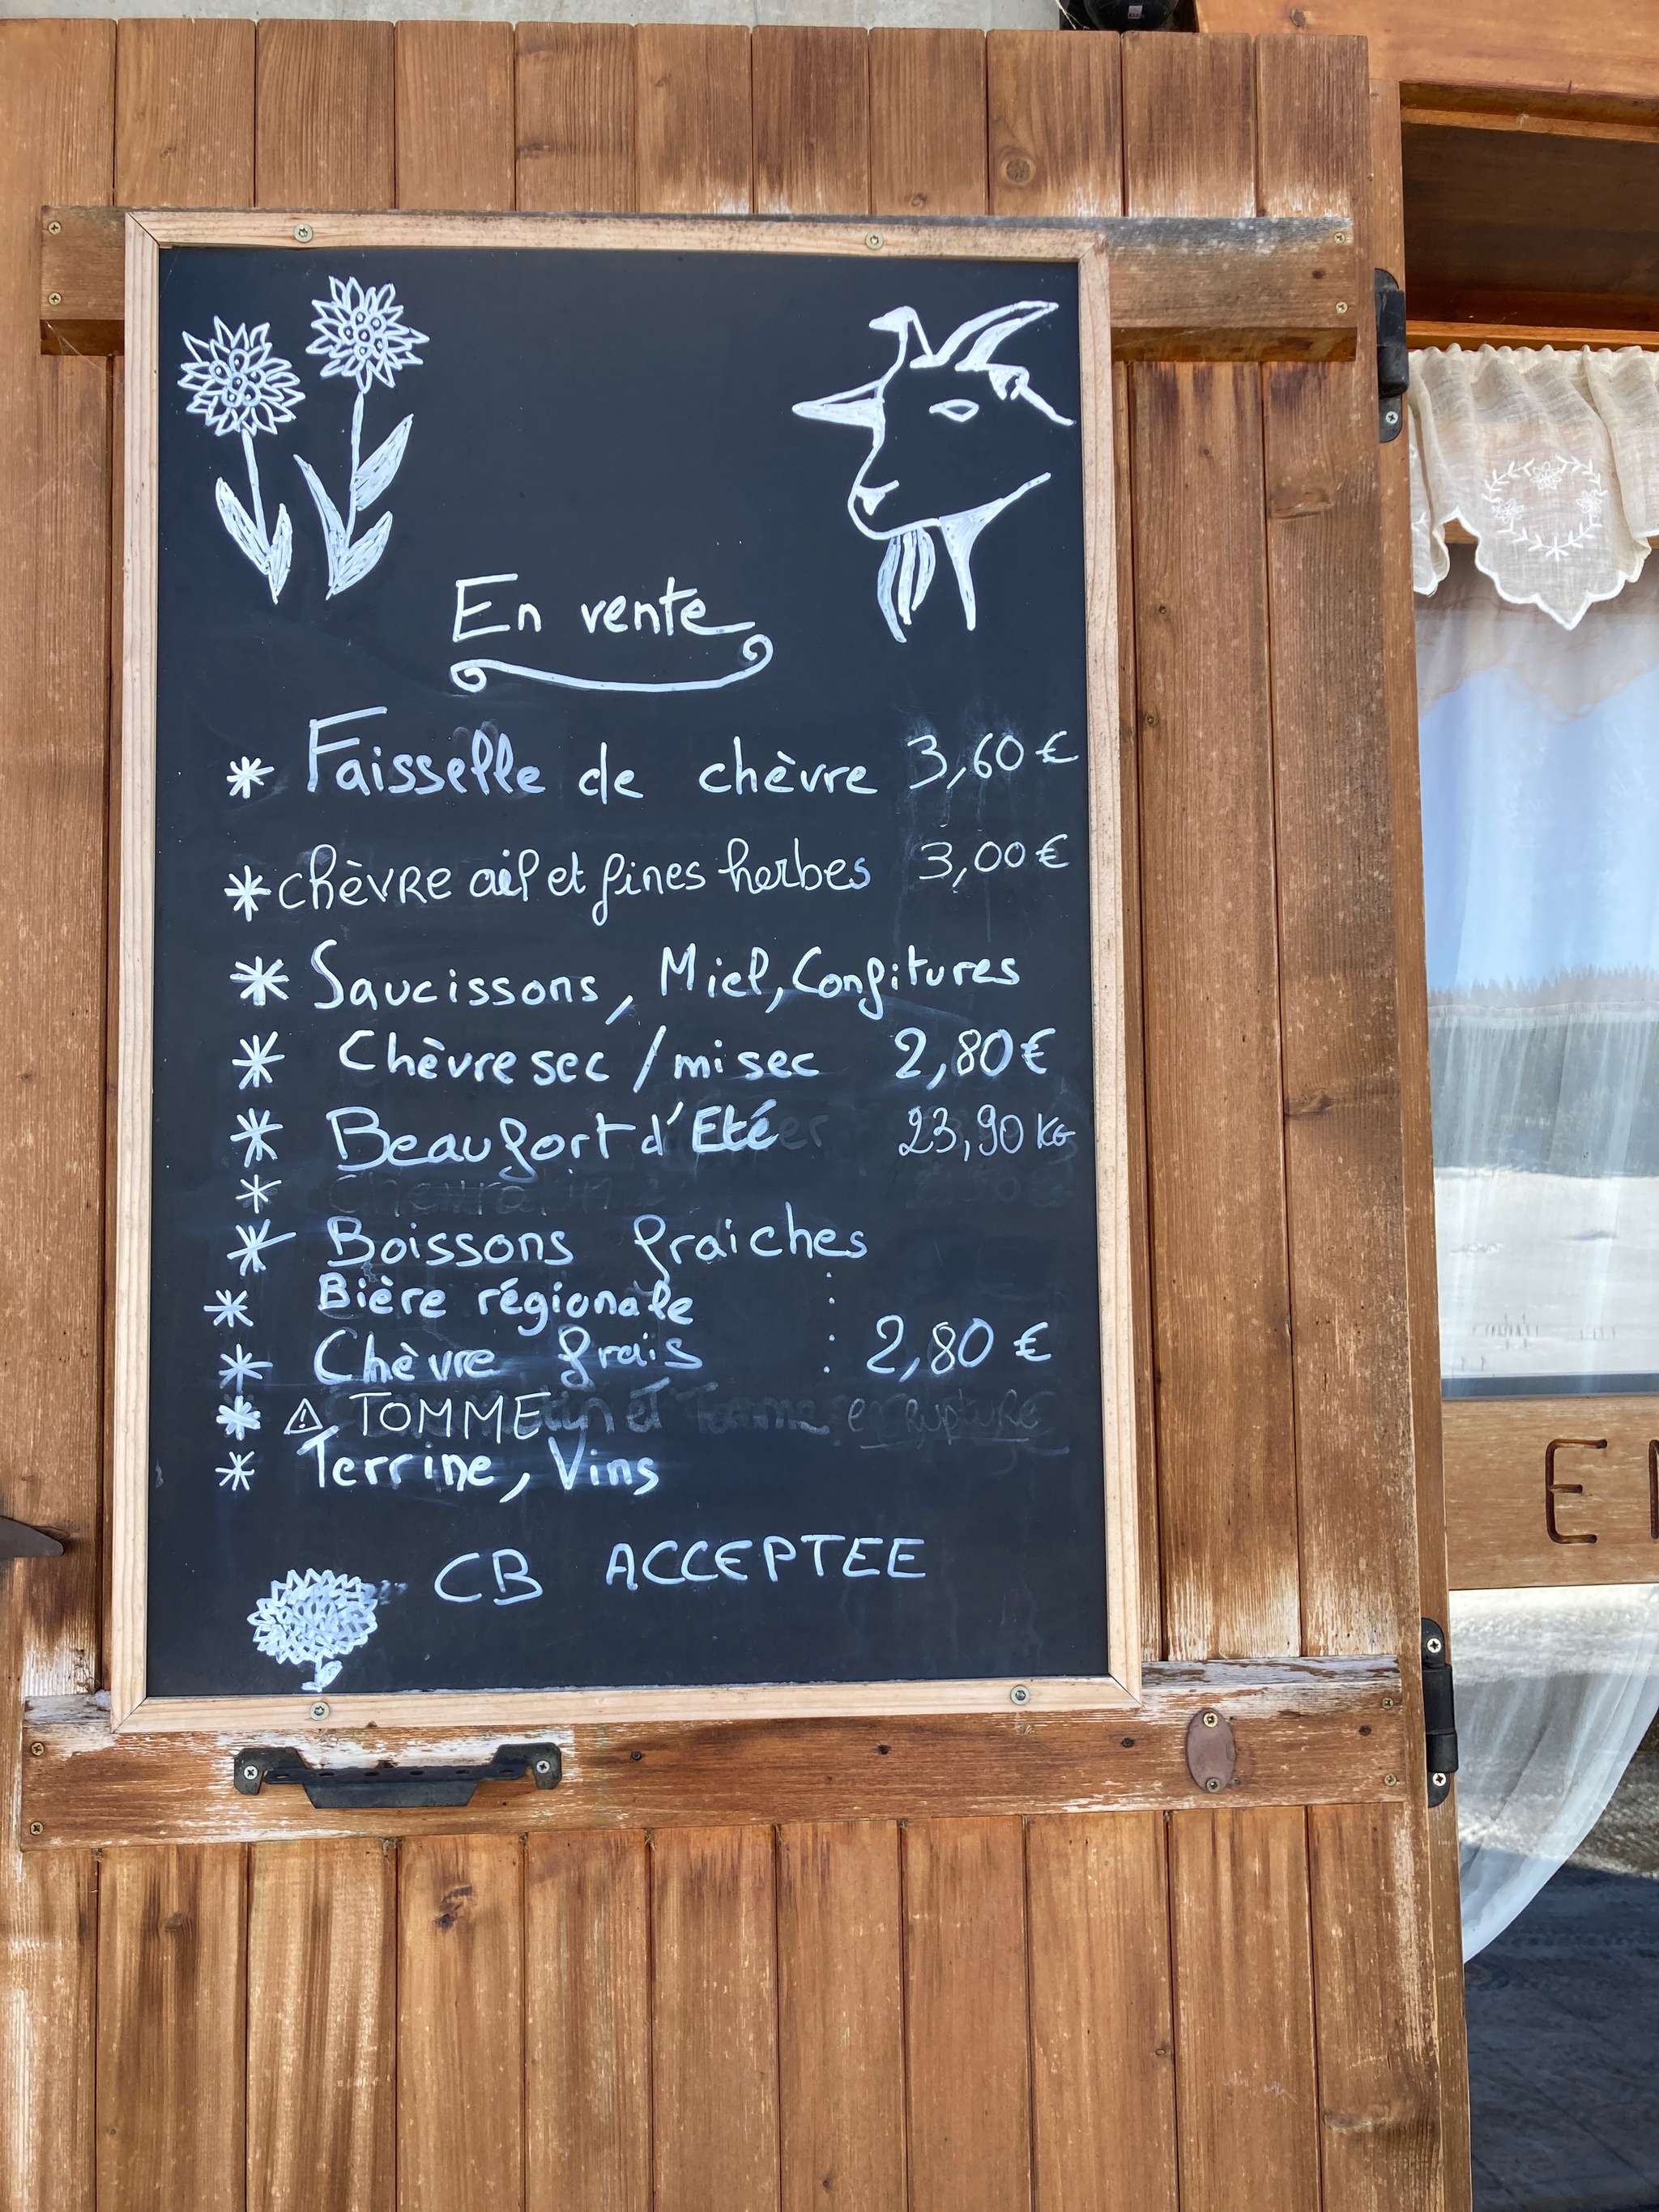 En vente
* Faisselle de chèvre 3,60 €
* chèvRe ail et fines herbes 3,00 €
* Saucissons, Miel, Confitures
* Chèvre sec / mi sec 2,80 €
* Beaufort d'Eté 23,90 KG
*
* Boissons fraiches
* Bière régionale :
* Chèvre frais : 2,80 €
* ⚠ TOMME et Tomme en RuptuRe
* Terrine, Vins
CB ACCEPTEE
E